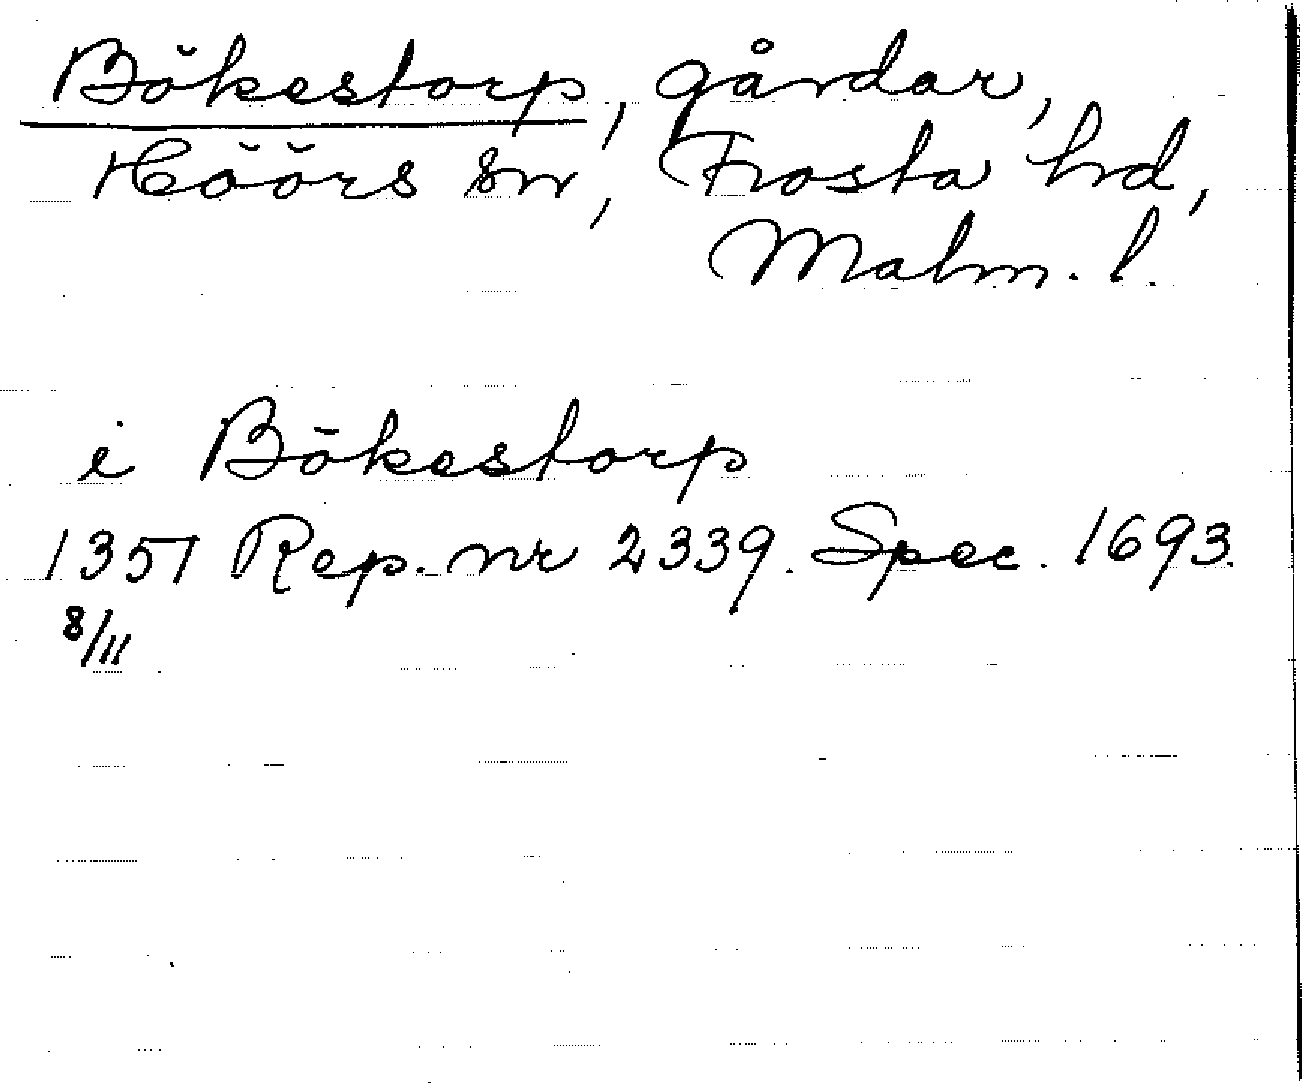 Bökestorp, gårdar,
Höörs sn, Frosta hd,
Malm. l.
i Bökestorp
1357 Rep. nr 2339. Spec. 1693.
8/11